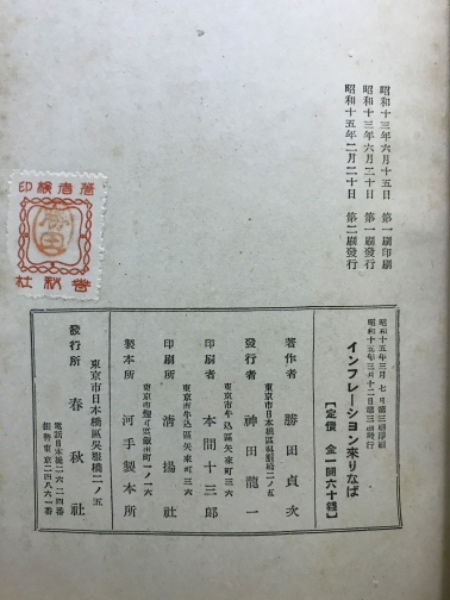 昭和十三年六月十五日 第一刷印刷
昭和十三年六月二十日 第一刷發行
昭和十五年二月二十日 第二刷發行
昭和十五年三月七日第三刷印刷
昭和十五年三月十二日第三刷發行
インフレーション來りなば
【定價 金一圓六十錢】
著作者 勝田貞次
東京市日本橋區吳服橋二ノ五
發行者 神田龍一
東京市牛込區矢來町三六
印刷者 本間十三郎
東京市牛込區矢來町三六
印刷所 淸揚社
東京市麴町區飯田町一ノ一六
製本所 河手製本所
東京市日本橋區吳服橋二ノ五
發行所 春秋社
電話日本橋二六二四番
振替東京二四八六一番
著者檢印
勝田
春秋社